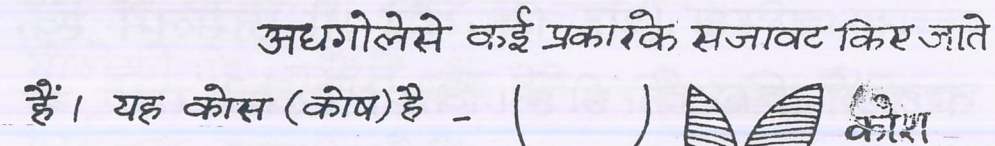 अधगोलेसे कई प्रकारके सजावट किए जाते
हैं। यह कोस (कोष) है - ( ) कोश